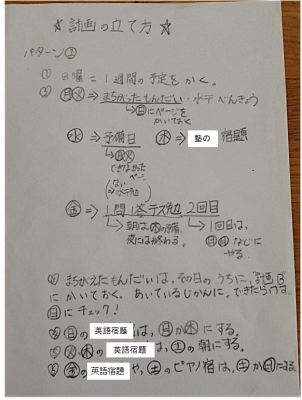 ☆計画の立て方☆
パターン①
① 日曜に1週間の予定をかく。
② ㊊㊋⇒まちがったもんだい・水テべんきょう
→㊐にページを
かいておく
㊌⇒予備日
→㊊㊋
できなかった
ページ
(ない⇒水テ勉)
㊍⇒塾の宿題
㊎⇒1問1答テス勉2回目
→朝は㊍の予備、
夜には終わる。
→1回目は、
㊊㊋などに
やる。
まちがえたもんだいは、その日のうちに、計画
にかいておく。あいているじかんに。できたら
にチェック!
㊐の英語宿題は、㊐か㊍にする。
㊋・㊍の英語宿題は、㊏の朝にする。
㊎の英語宿題や、㊏のピアノ宿は、㊏か㊐にする。